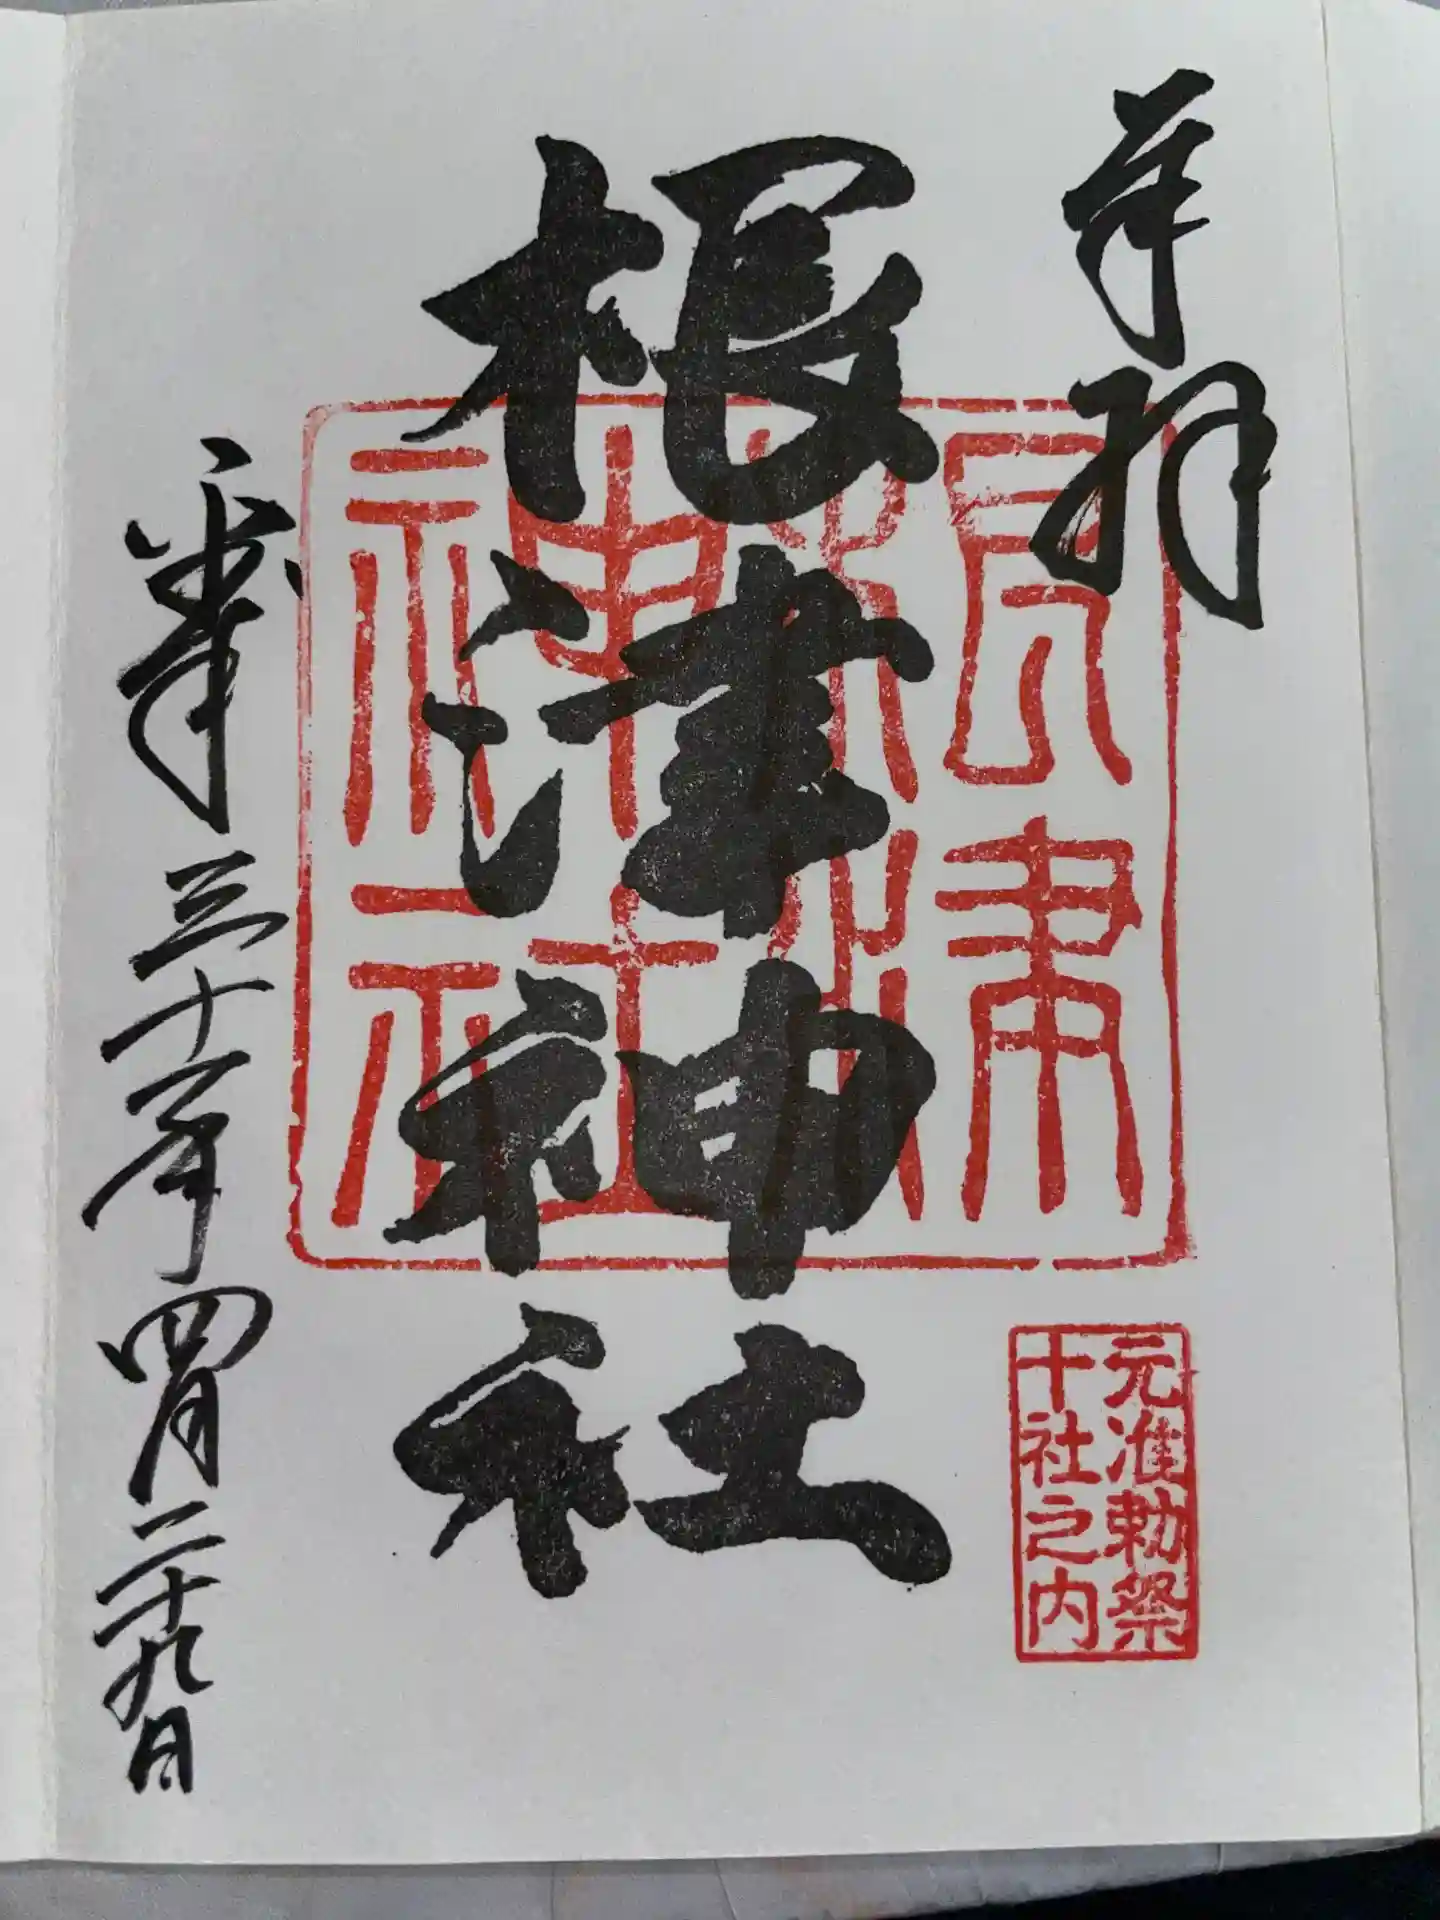 奉拝
根津神社
根津神社
元准勅祭
十社之内
平成三十一年四月二十九日